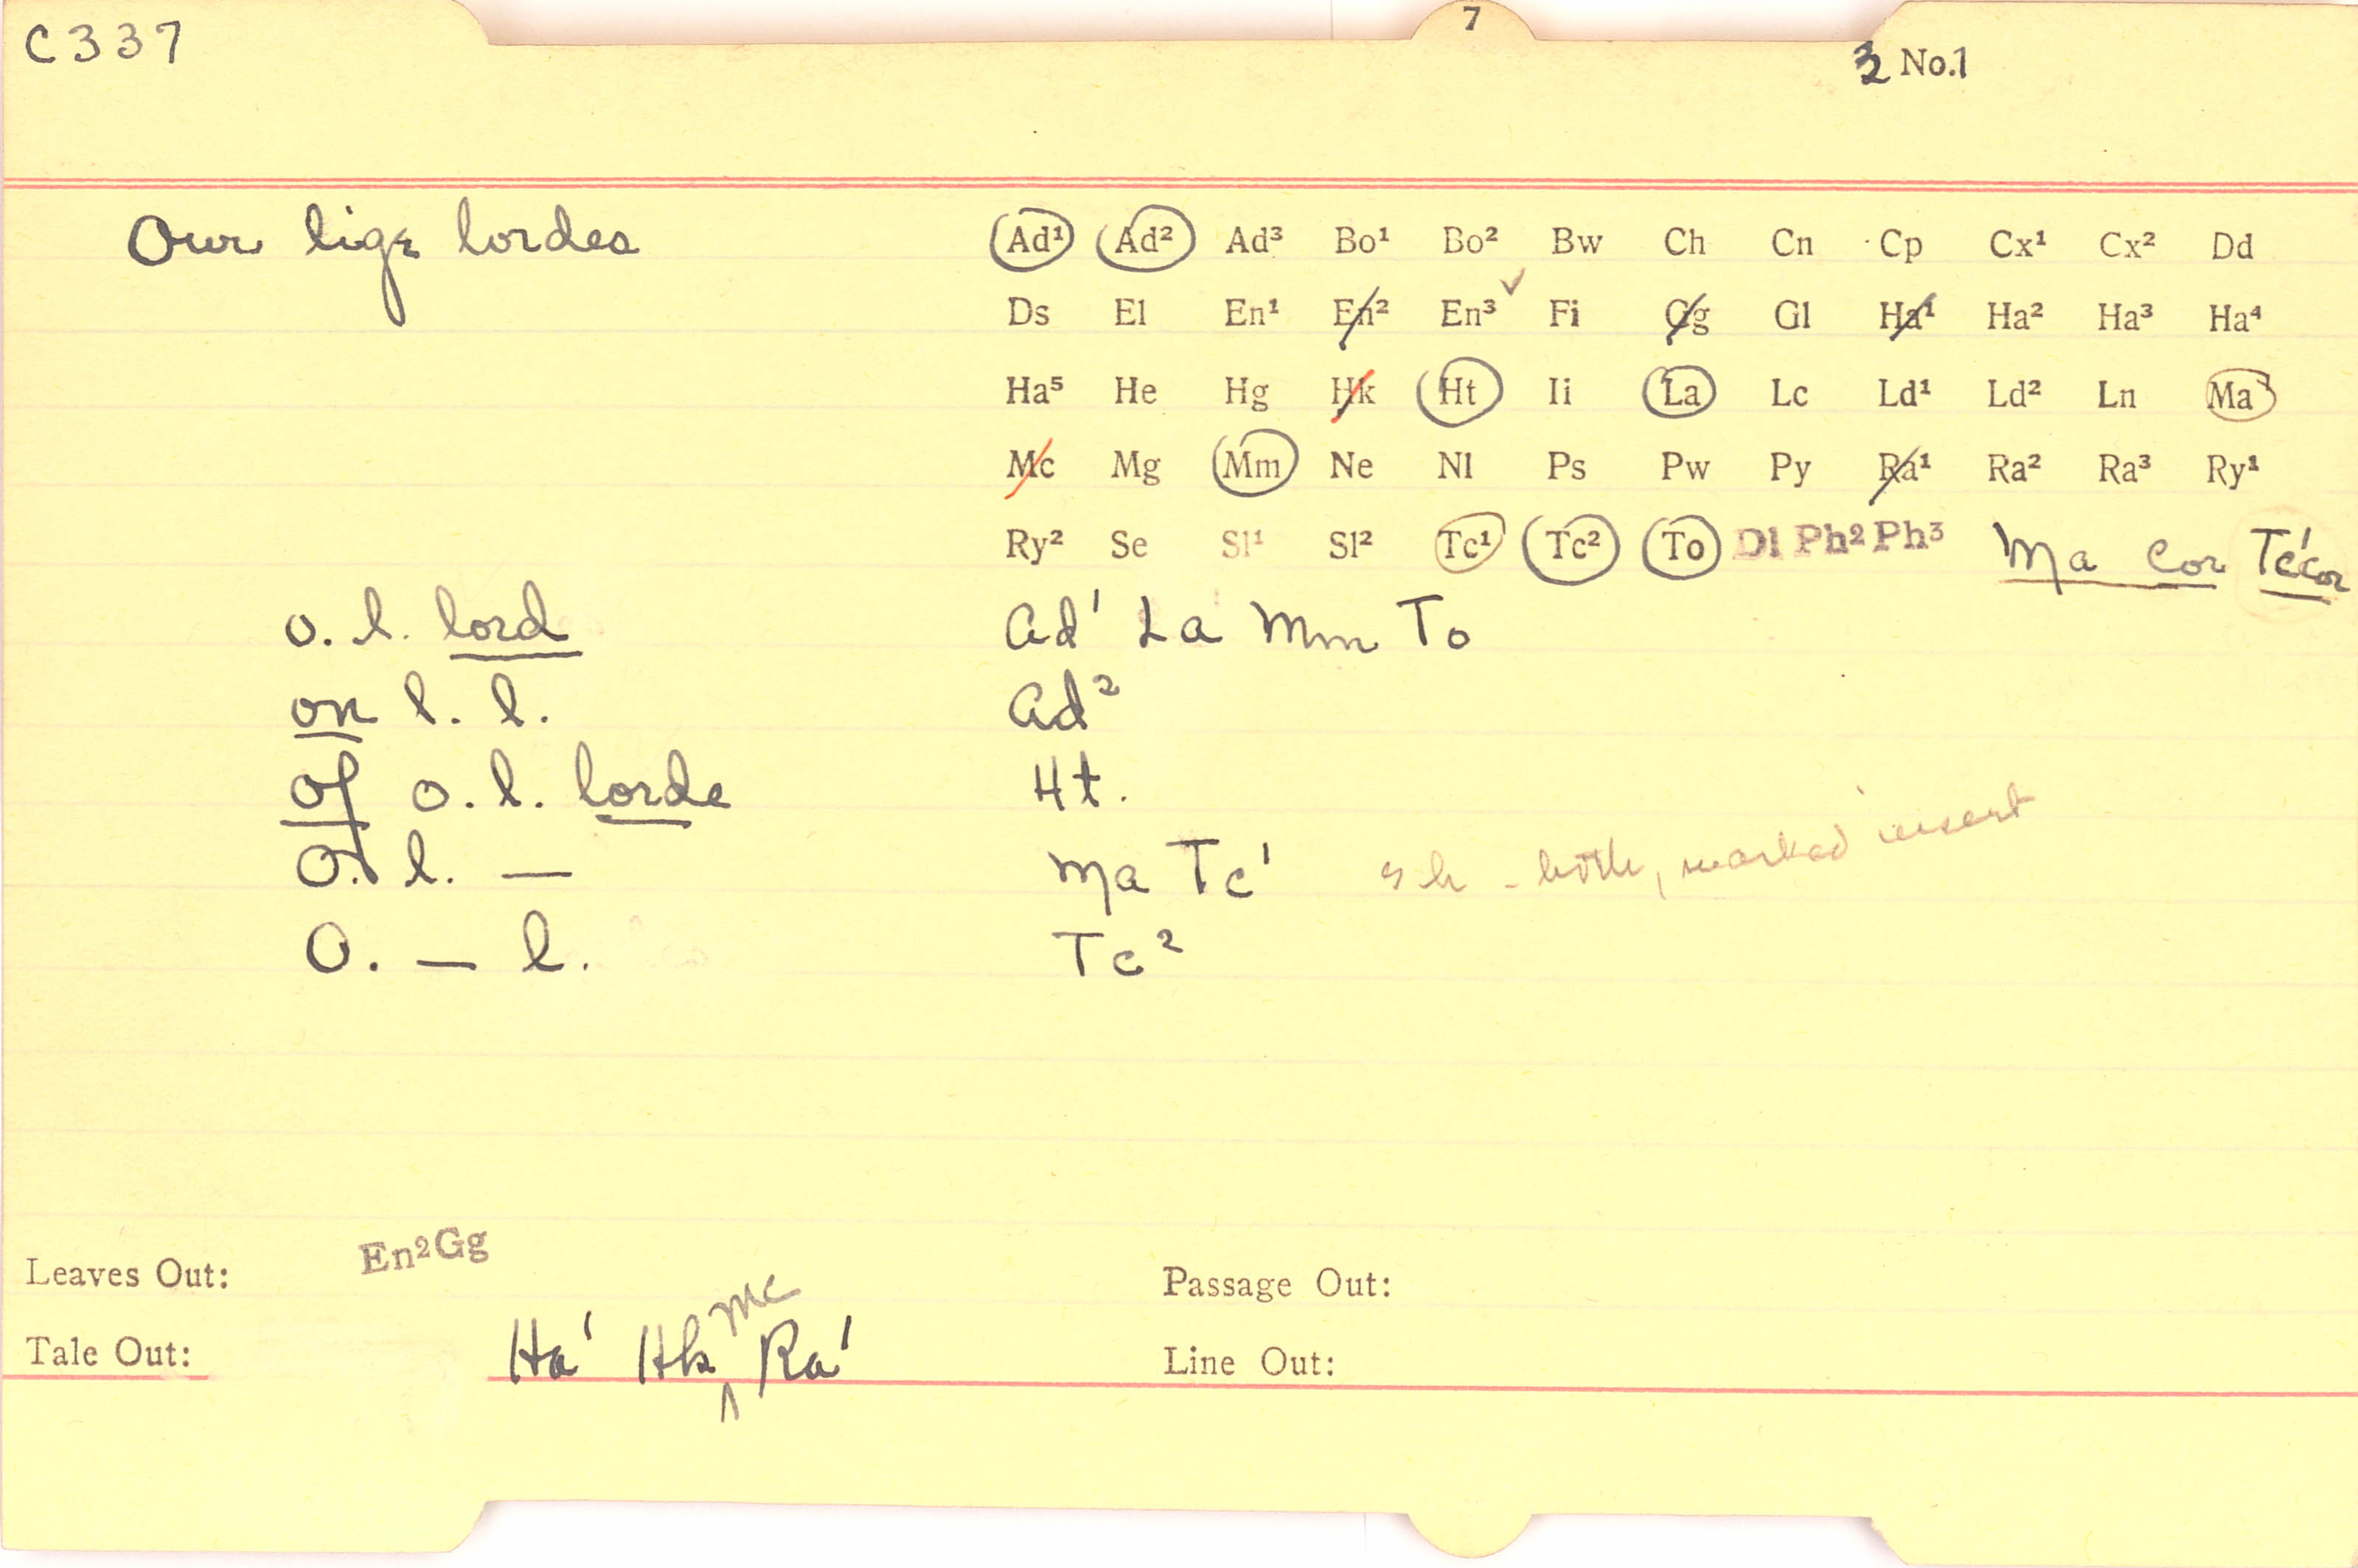 C337
7
2 No.1
Our lige lordes
Ad¹ Ad² Ad³ Bo¹ Bo² Bw Ch Cn Cp Cx¹ Cx² Dd
Ds El En¹ En² En³ Fi Gg Gl Ha¹ Ha² Ha³ Ha⁴
Ha⁵ He Hg Hk Ht Ii La Lc Ld¹ Ld² Ln Ma
Mc Mg Mm Ne Nl Ps Pw Py Ra¹ Ra² Ra³ Ry¹
Ry² Se Sl¹ Sl² Tc¹ Tc² To Dl Ph² Ph³ Ma Cor Tc¹cor
o. l. lord Ad¹ La Mm To
on l. l. Ad²
of o. l. lorde Ht.
O. l. — Ma Tc¹ - both, marked insert
O. — l. Tc²
Leaves Out: En²Gg
Passage Out:
Tale Out: Ha¹ Hk Mc Ra¹
Line Out: